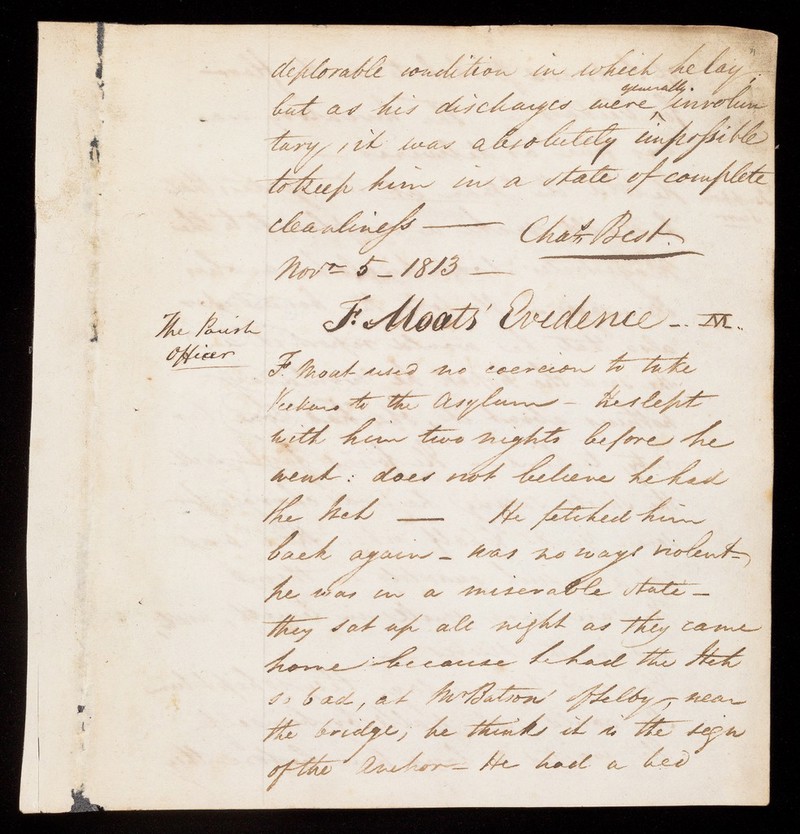 deplorable condition in which he lay;
but as his discharges were generally involun
tary, it was absolutely impossible
to keep him in a state of complete
cleanliness — Chas. Best.
Novr 5 - 1813 —
F. Moats' Evidence - IV.
The Parish
Officer
F. Moat used no coercion to take
Vickers to the Asylum - He slept
with him two nights before he
went: does not believe he had
the Itch — He fetched him
back again - was no ways violent -
he was in a miserable state -
they sat up all night as they came
home because he had the Itch
so bad, at Mr Batson' of Selby, near
the bridge; he thinks it is the sign
of the Anchor - He had a bed